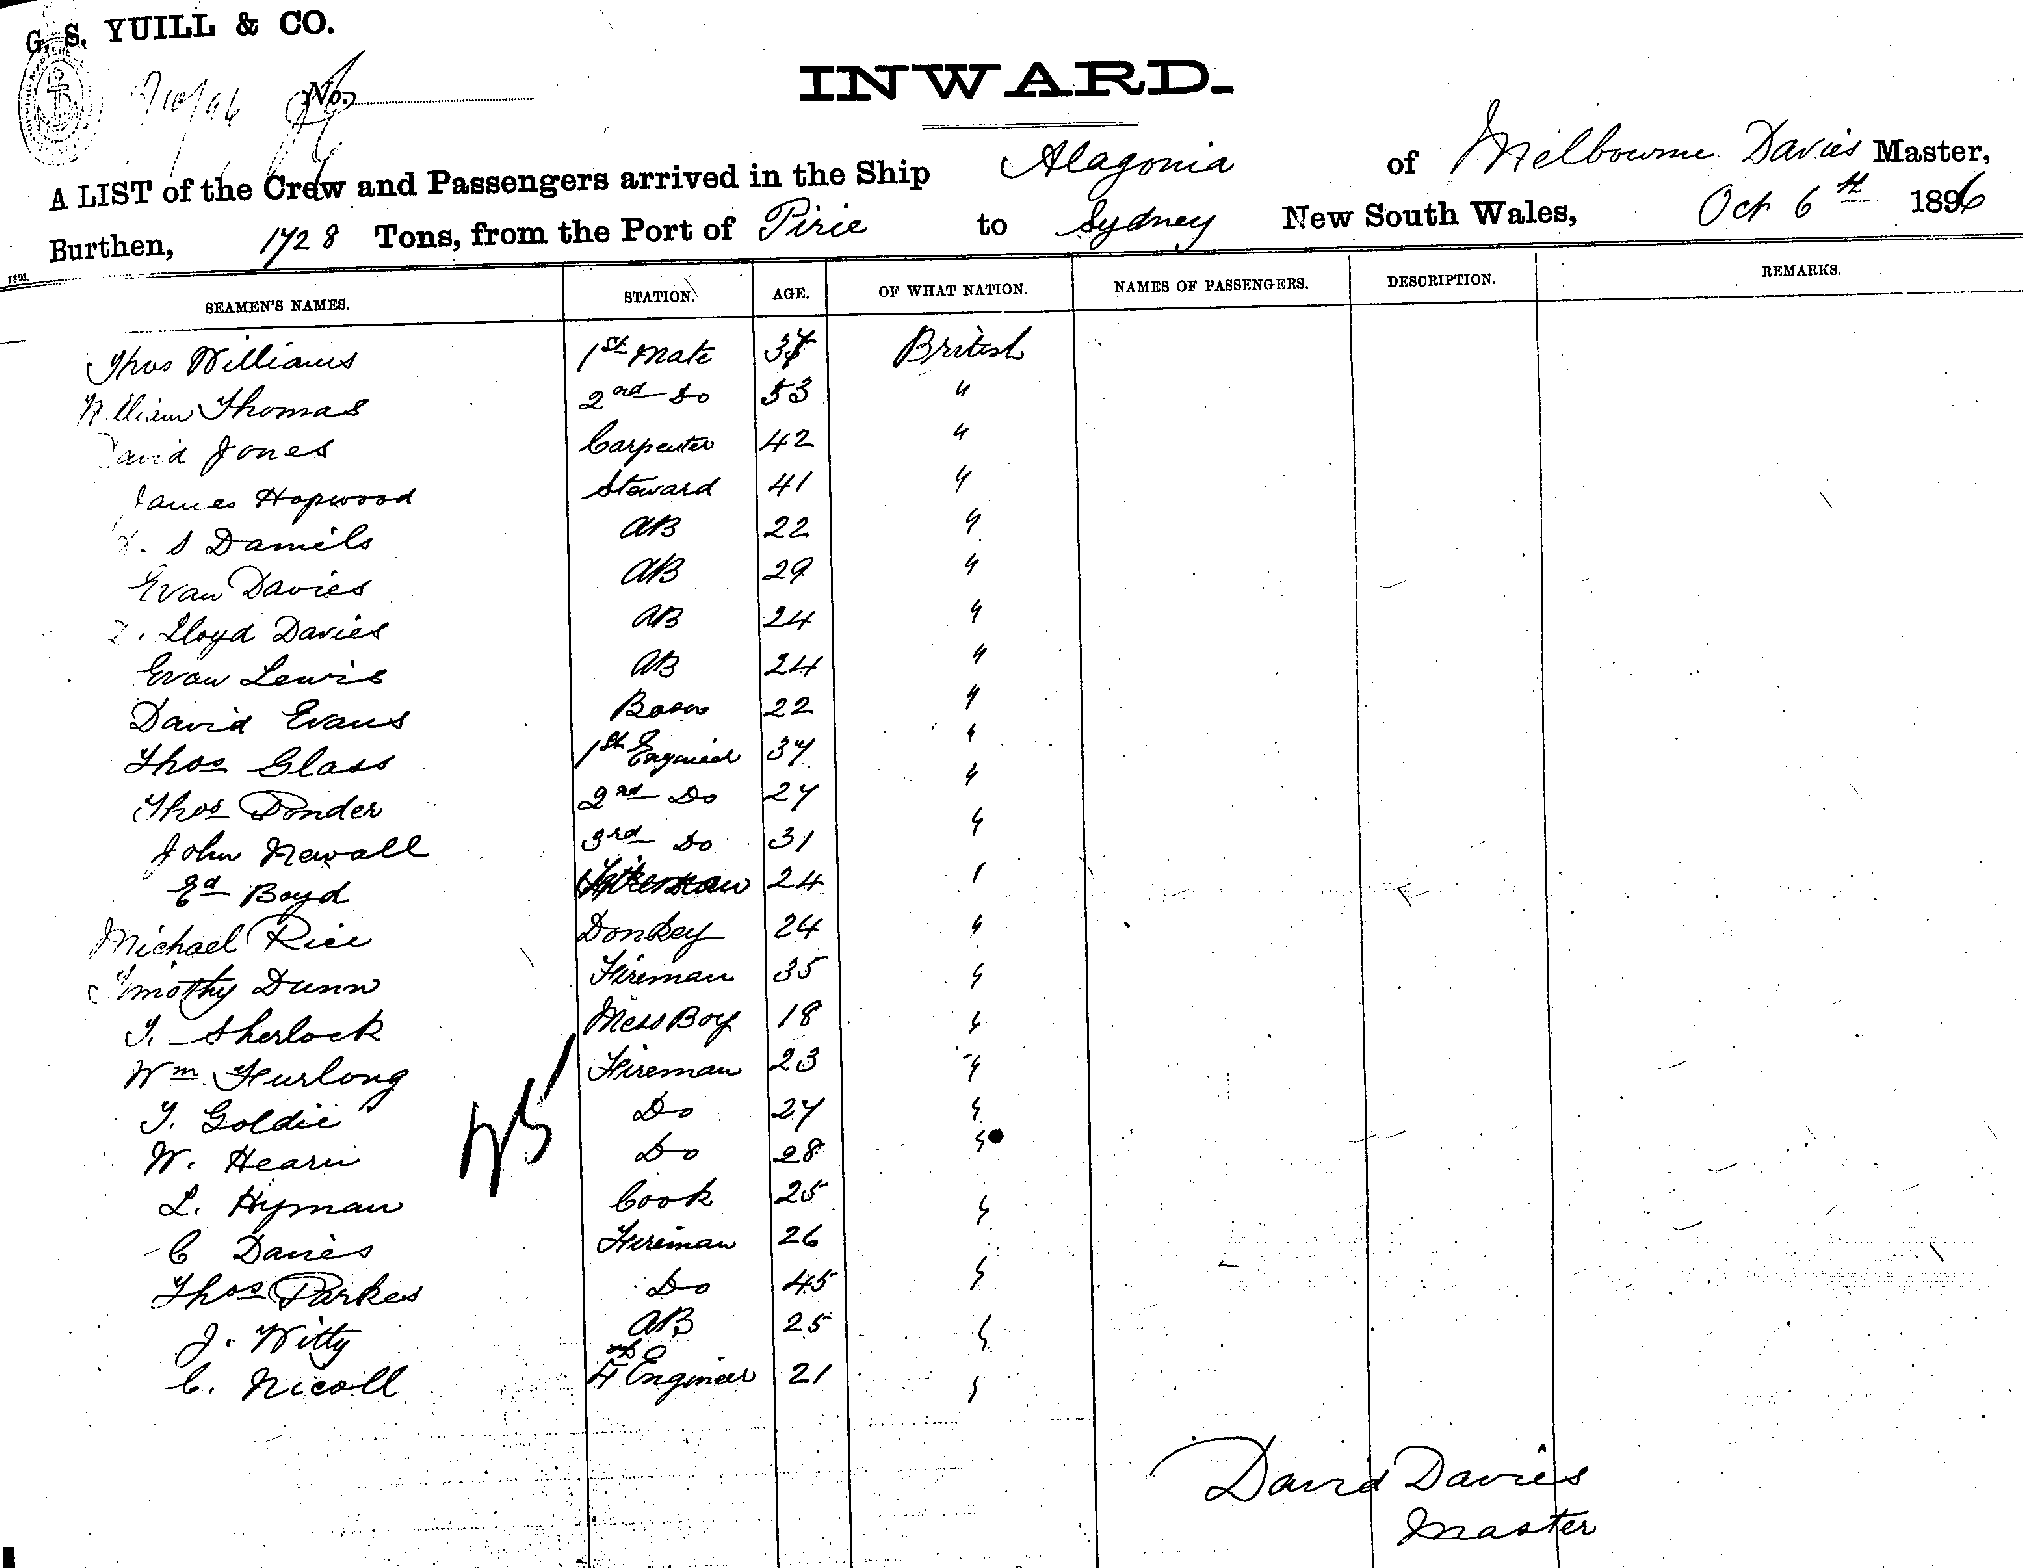 G. S. YUILL & CO.
No.
INWARD.
A LIST of the Crew and Passengers arrived in the Ship Alagonia of Melbourne Davies Master,
Burthen, 1728 Tons, from the Port of Pirie to Sydney New South Wales, Oct 6th 1896
SEAMEN'S NAMES. STATION. AGE. OF WHAT NATION. NAMES OF PASSENGERS. DESCRIPTION. REMARKS.
Thos Williams 1st Mate British
William Thomas 2nd Do 53 "
David Jones Carpenter 42 "
James Hopwood Steward 41 "
S Daniels AB 22 "
Evan Davies AB 29 "
Lloyd Davies AB 24 "
Evan Lewis AB 24 "
David Evans Bosn 22 "
Thos Glass 1st Engineer 37 "
Thos Ponder 2nd Do 27 "
John Newall 3rd Do 31 "
Ed Boyd 24 "
Michael Rice Donkey 24 "
Timothy Dunn Fireman 35 "
T. Sherlock Mess Boy 18 "
Wm Furlong Fireman 23 "
T. Goldie Do 27 "
W. Hearn Do 28 "
L. Hyman Cook 25 "
C Davies Fireman 26
Thos Parkes Do 45 "
J. Witty AB 25 "
C. Nicoll 4th Engineer 21 "
25
David Davies
Master